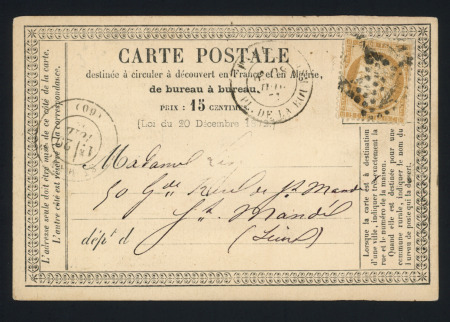 CARTE POSTALE
destinée à circuler à découvert en France et en Algérie,
de bureau à bureau.
PRIX : 15 CENTIMES
(Loi du 20 Décembre 1872)
L'adresse seule doit être mise de ce côté de la carte.
L'autre côté est réservé à la correspondance.
(60)
DE LA
Madame
St Mandé
St. Mandé
dépt d (Seine)
Lorsque la carte est à destination
d'une ville, indiquer très-exactement la
rue et le numéro de la maison.
Quand elle est destinée pour une
commune rurale, indiquer le nom du
bureau de poste qui la dessert.